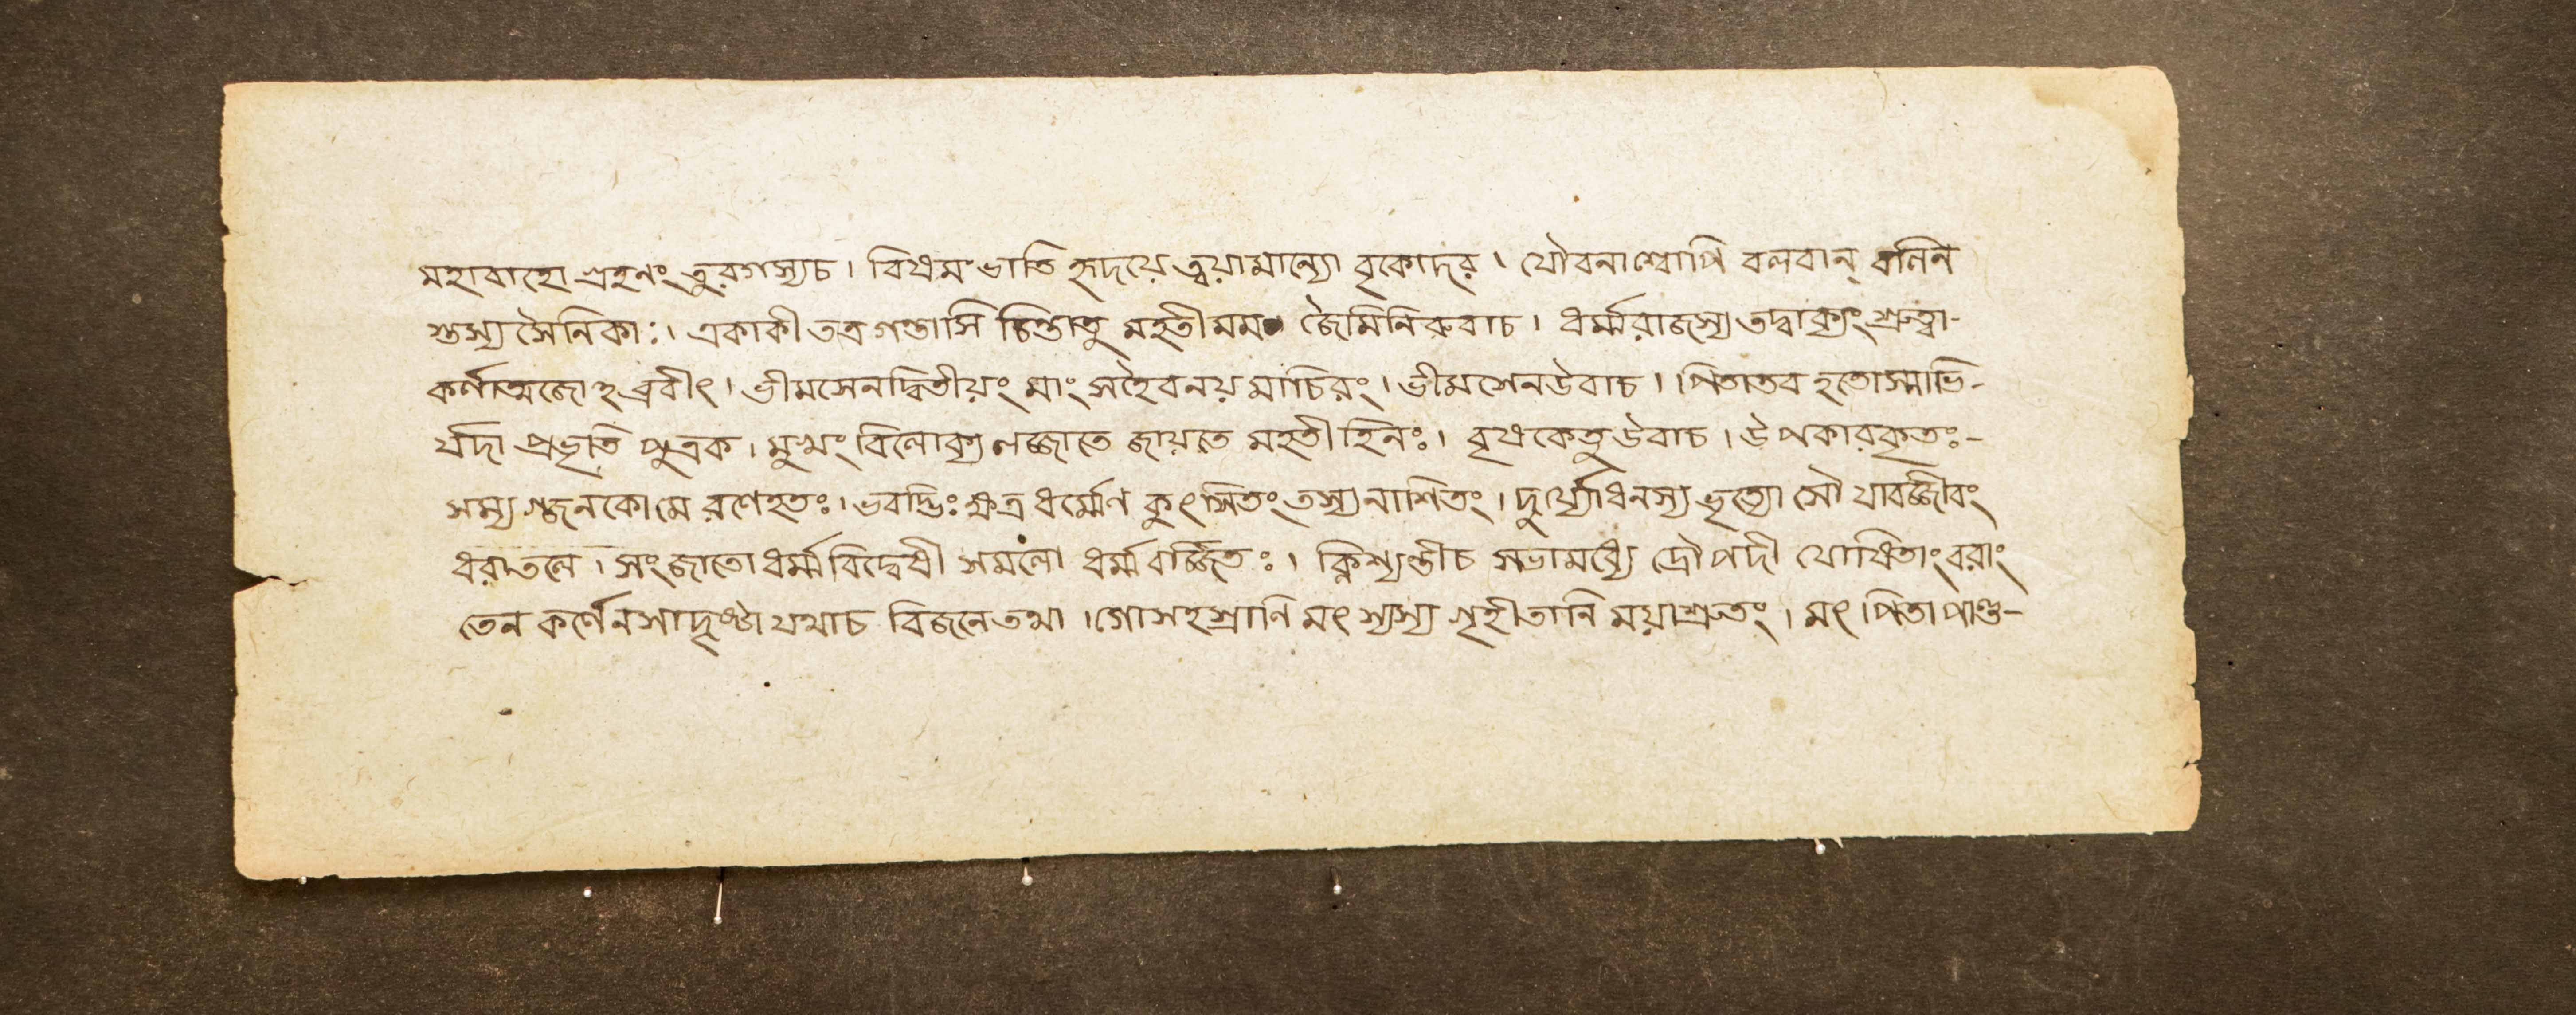 মহাবাহো গ্রহনং তুরগস্যচ। বিষমং ভাতি হৃদয়ে ত্বয়ামান্যো বৃকোদর। যৌবনাশ্বোপি বলবান্ বলিন
স্তস্য সৈনিকাঃ। একাকী তত্র গন্তাসি চিন্তাতু মহতী মম জৈমিনিরুবাচ। ধর্ম্মরাজস্য তদ্বাক্যং শ্রুত্বা-
কর্ণাত্মজোহব্রবীৎ। ভীমসেনদ্বিতীয়ং মাং সহৈবনয় মাচিরং। ভীমশেনউবাচ। পিতাতব হতোস্মাভি-
র্যদা প্রভৃতি পুত্রক। মুখং বিলোক্য লজ্জাতে জায়তে মহতী হিনঃ। বৃষকেতুউবাচ। উপকারকৃতঃ-
সম্য গ্জনকো মে রণেহতঃ। ভবদ্ভিঃ ক্ষত্র ধর্ম্মেণ কুৎসিতং তস্য নাশিতং। দুর্য্যোধনস্য ভৃত্যো সৌ যাবজ্জীবং
ধরাতলে। সংজাতো ধর্ম্মবিদ্বেষী সমলো ধর্ম্ম বর্জ্জিতঃ। ক্লিশ্যন্তীচ সভামধ্যে দ্রৌপদী যোষিতাং বরাং
তেন কর্ণেন সাদৃষ্টা যথাচ বিজনে তথা। গোসহস্রাণি মৎস্যস্য গৃহীতানি ময়াশ্রুতং। মৎ পিতা পাণ্ডু-